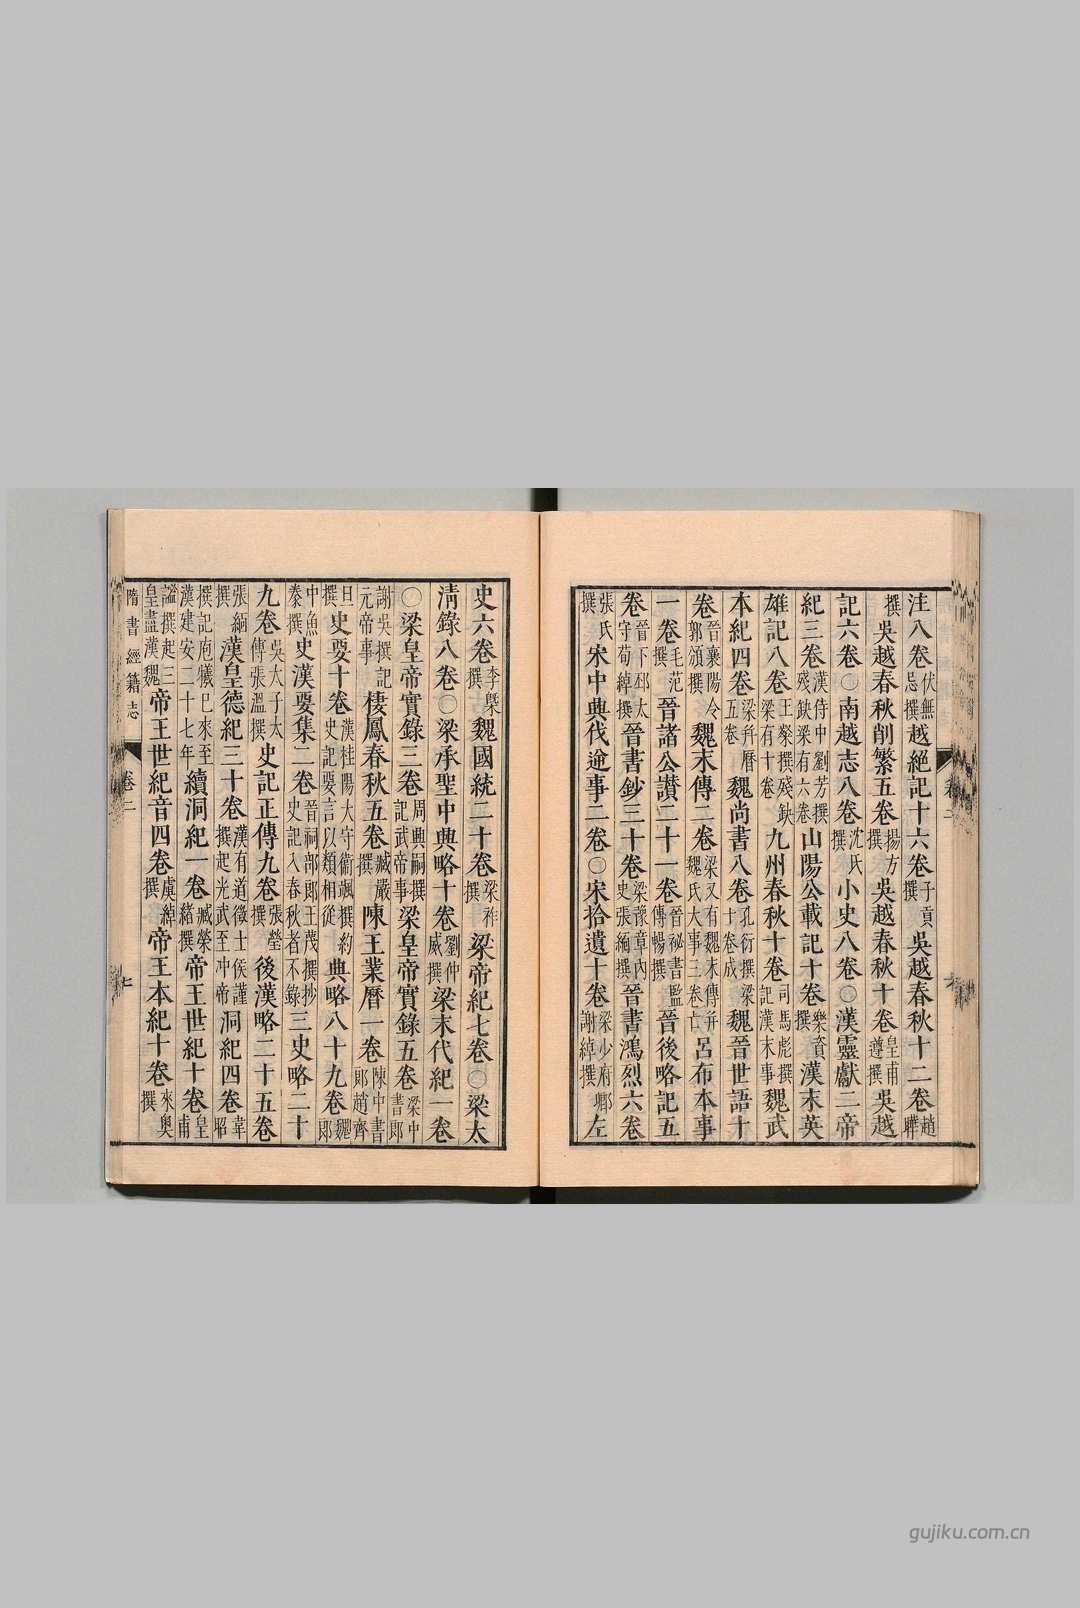 注八卷伏無忌撰越絕記十六卷子貢撰吳越春秋十二卷趙曄
撰吳越春秋削繁五卷楊方撰吳越春秋十卷皇甫遵撰吳越
記六卷〇南越志八卷沈氏撰小史八卷〇漢靈獻二帝
紀三卷漢侍中劉芳撰殘缺梁有六卷山陽公載記十卷樂資撰漢末英
雄記八卷王粲撰殘缺梁有十卷九州春秋十卷司馬彪撰記漢末事魏武
本紀四卷梁并曆五卷魏尚書八卷孔衍撰梁十卷成魏晉世語十
卷晉襄陽令郭頒撰魏末傳二卷梁又有魏末傳并魏氏大事三卷亡呂布本事
一卷毛范撰晉諸公讚二十一卷晉祕書監傅暢撰晉後略記五
卷晉下邳太守荀綽撰晉書鈔三十卷梁豫章內史張緬撰晉書鴻烈六卷
張氏撰宋中典伐逾事二卷〇宋拾遺十卷梁少府卿謝綽撰左
史六卷李㮣撰魏國統二十卷梁祚撰梁帝紀七卷〇梁太
清錄八卷〇梁承聖中典略十卷劉仲威撰梁末代紀一卷
〇梁皇帝實錄三卷周興嗣撰記武帝事梁皇帝實錄五卷梁中書郎
謝吳撰記元帝事棲鳳春秋五卷臧嚴撰陳王業曆一卷陳中書郎趙齊
旦撰史要十卷漢桂陽太守衛颯撰約史記要言以類相從典略八十九卷魏郎
中魚豢撰史漢要集二卷晉祠部郎王蔑撰抄史記入春秋者不錄三史略二十
九卷吳太子太傅張溫撰史記正傳九卷張瑩撰後漢略二十五卷
張緬撰漢皇德紀三十卷漢有道徵士侯瑾撰起光武至沖帝洞紀四卷韋昭
撰記庖犧已來至漢建安二十七年續洞紀一卷臧榮緒撰帝王世紀十卷皇甫
謐撰起三皇盡漢魏帝王世紀音四卷虞綽撰帝王本紀十卷來奧撰
隋書經籍志
卷二
七
gujiku.com.cn